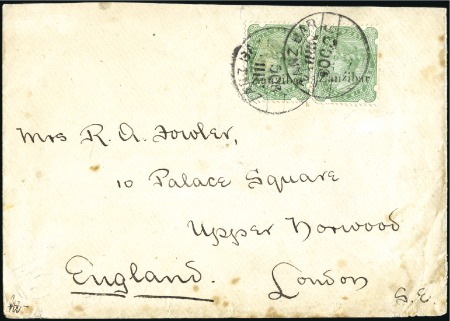 Zanzibar Zanzibar
ZANZIBAR
Mrs R. A. Fowler,
10 Palace Square
Upper Norwood
England. London
S.E.